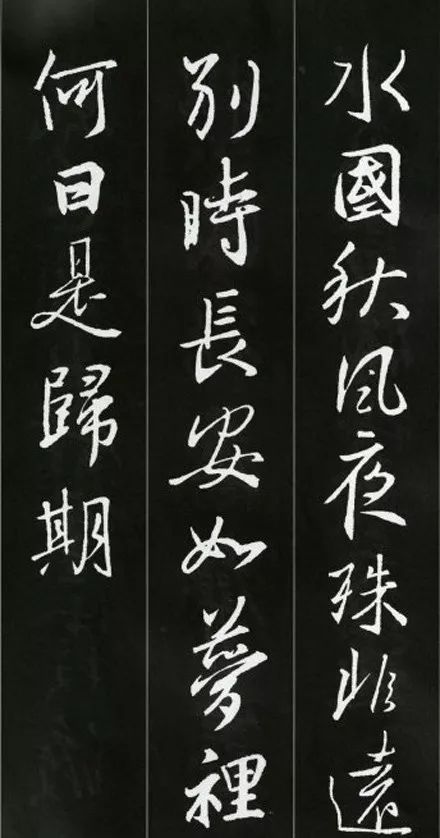 水國秋風夜殊非遠
別時長安如夢裡
何日是歸期